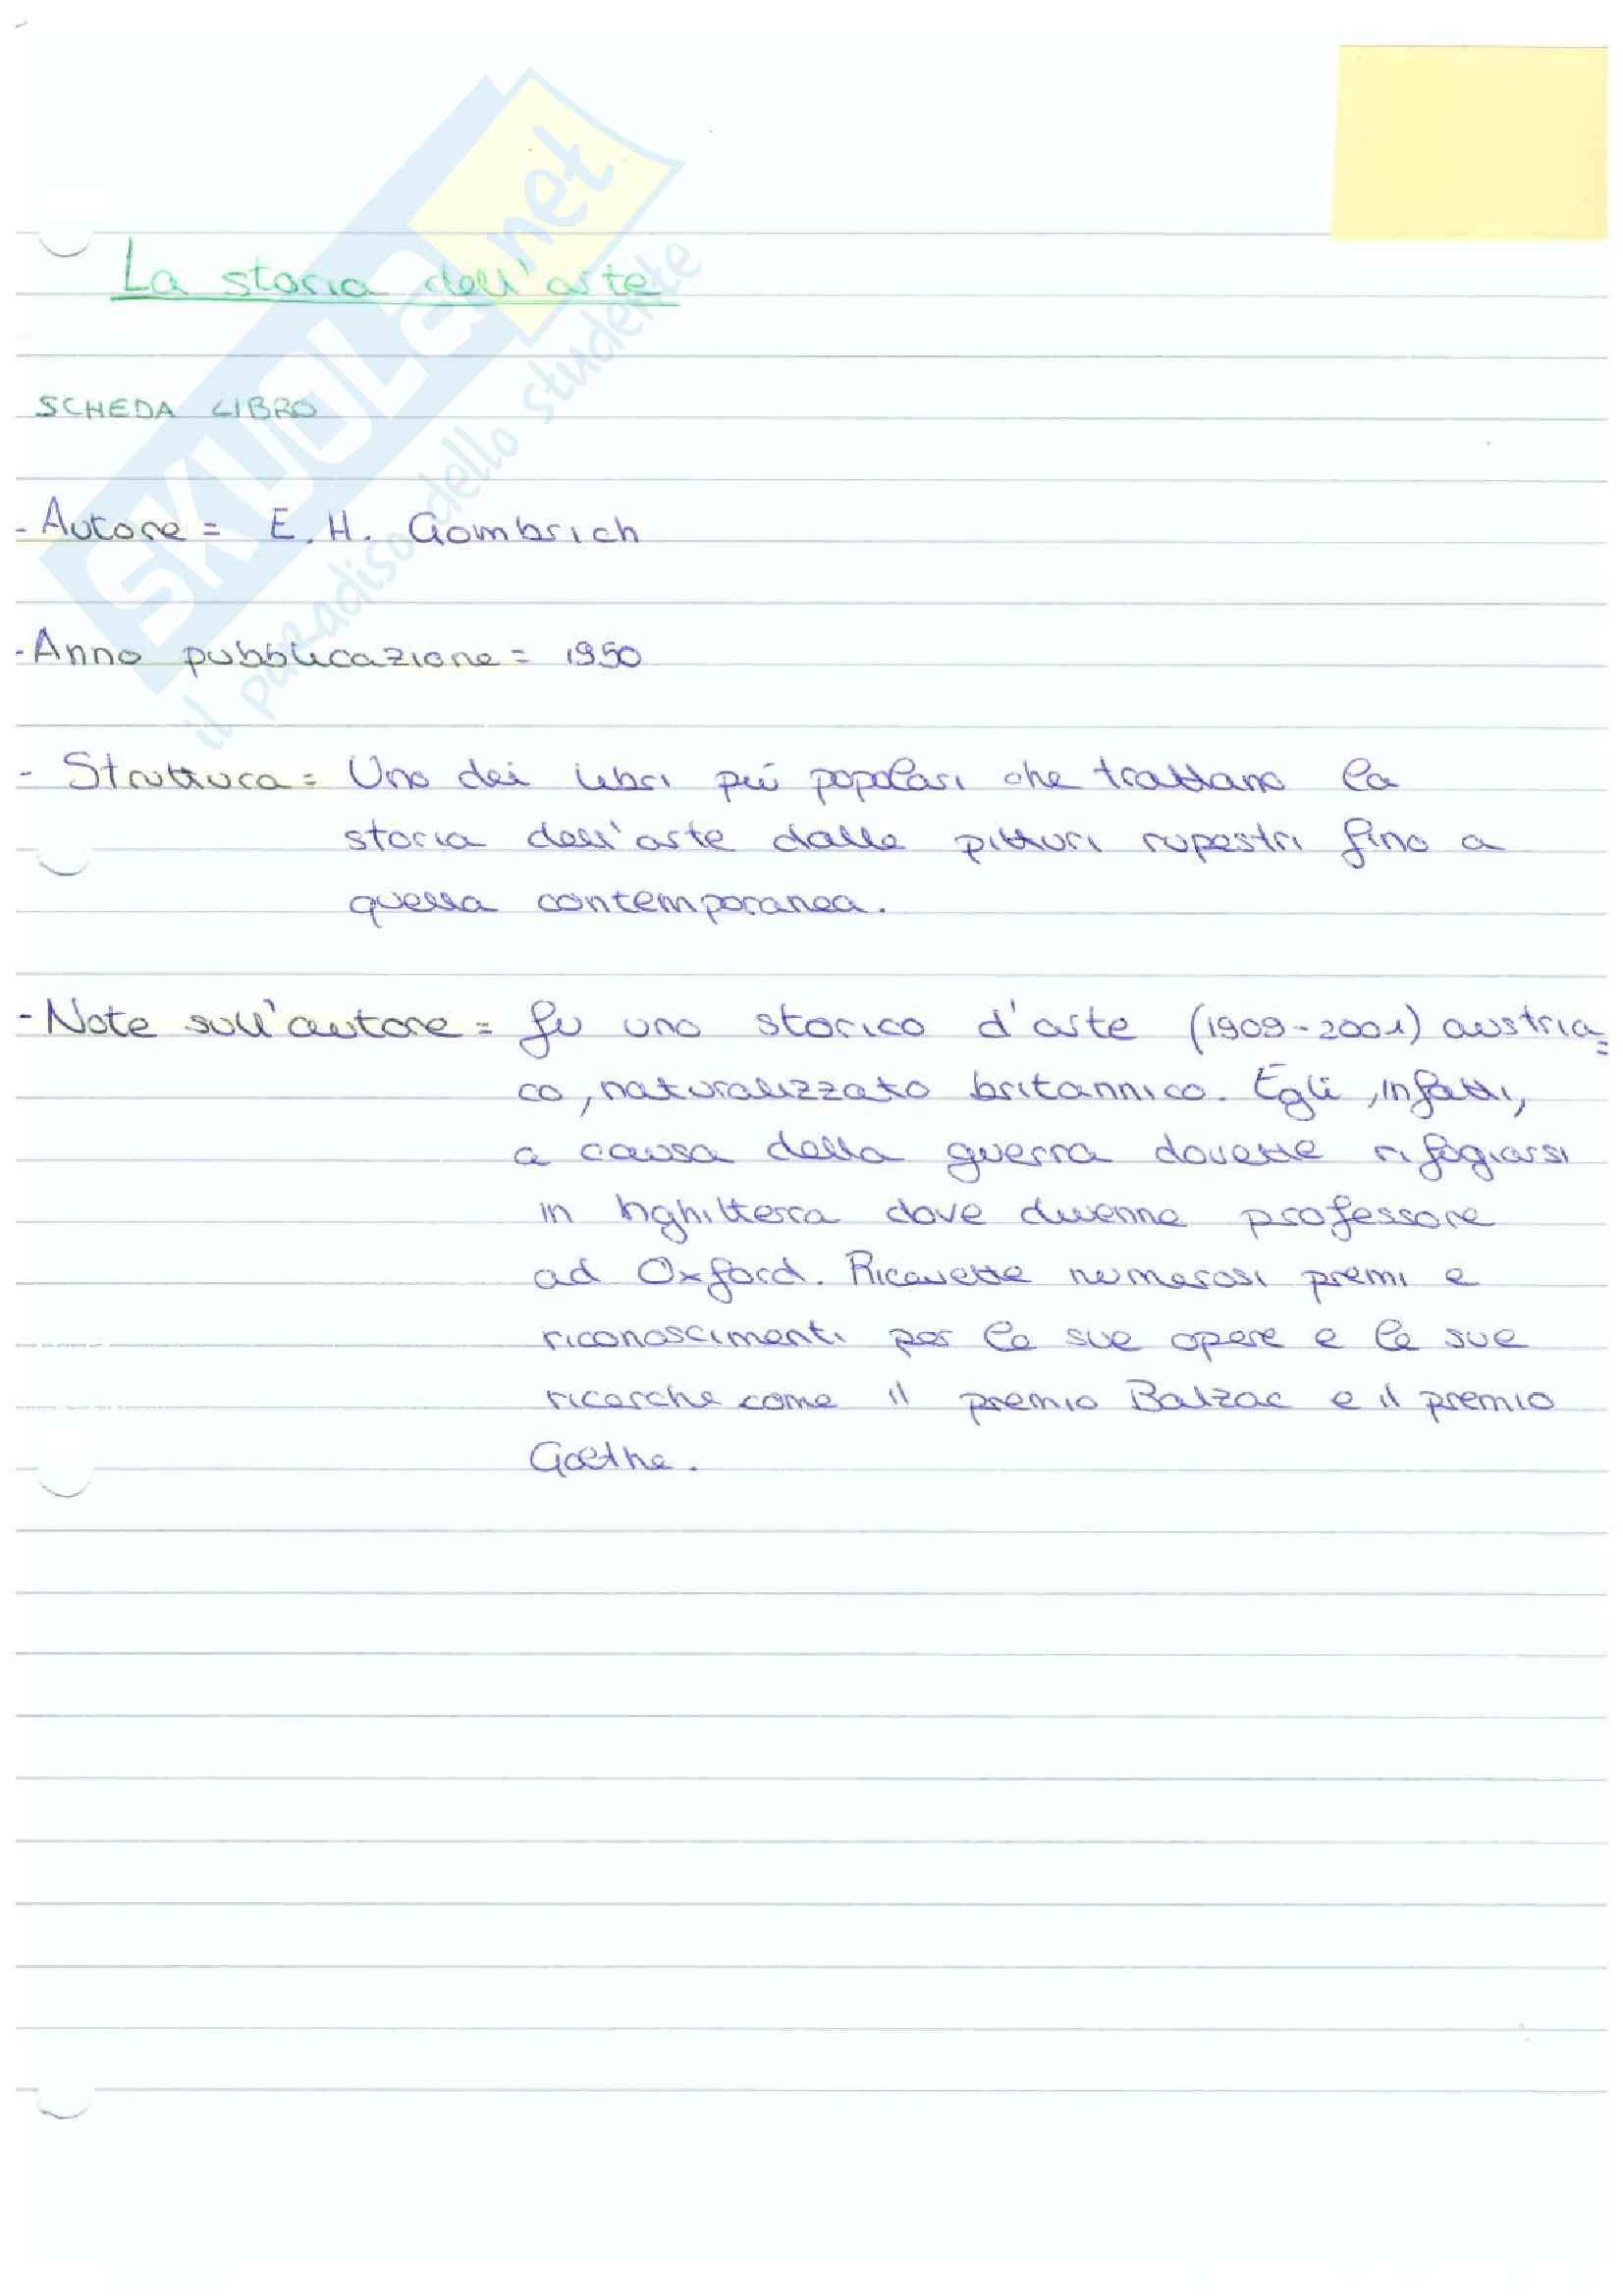 SKUOLA.net
il paradiso dello studente
La storia dell'arte
SCHEDA LIBRO
- Autore = E. H. Gombrich
- Anno pubblicazione = 1950
- Struttura = Uno dei libri più popolari che trattano la
storia dell'arte dalle pitturi rupestri fino a
quella contemporanea.
- Note sull'autore = fu uno storico d'arte (1909-2001) austria=
co, naturalizzato britannico. Egli, infatti,
a causa della guerra dovette rifugiarsi
in Inghilterra dove divenne professore
ad Oxford. Ricevette numerosi premi e
riconoscimenti per le sue opere e le sue
ricerche come il premio Balzac e il premio
Goethe.